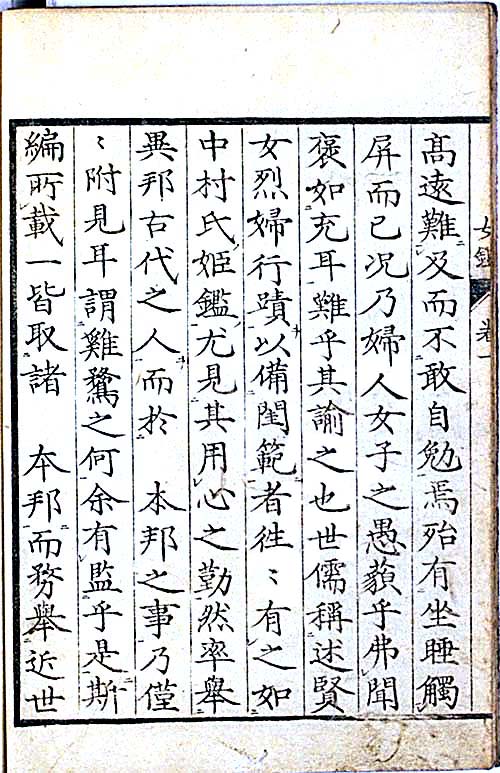 女鑑 卷一
高遠難及而不敢自勉焉殆有坐睡觸
屏而已况乃婦人女子之愚蒙乎弗聞
褒如充耳難乎其諭之也世儒稱述賢
女烈婦行蹟以備閨範者徃〻有之如
中村氏姬鑑尤見其用心之勤然率舉
異邦古代之人而於 本邦之事乃僅
〻附見耳謂雞鶩之何余有監乎是斯
編所載一皆取諸 本邦而務舉近世